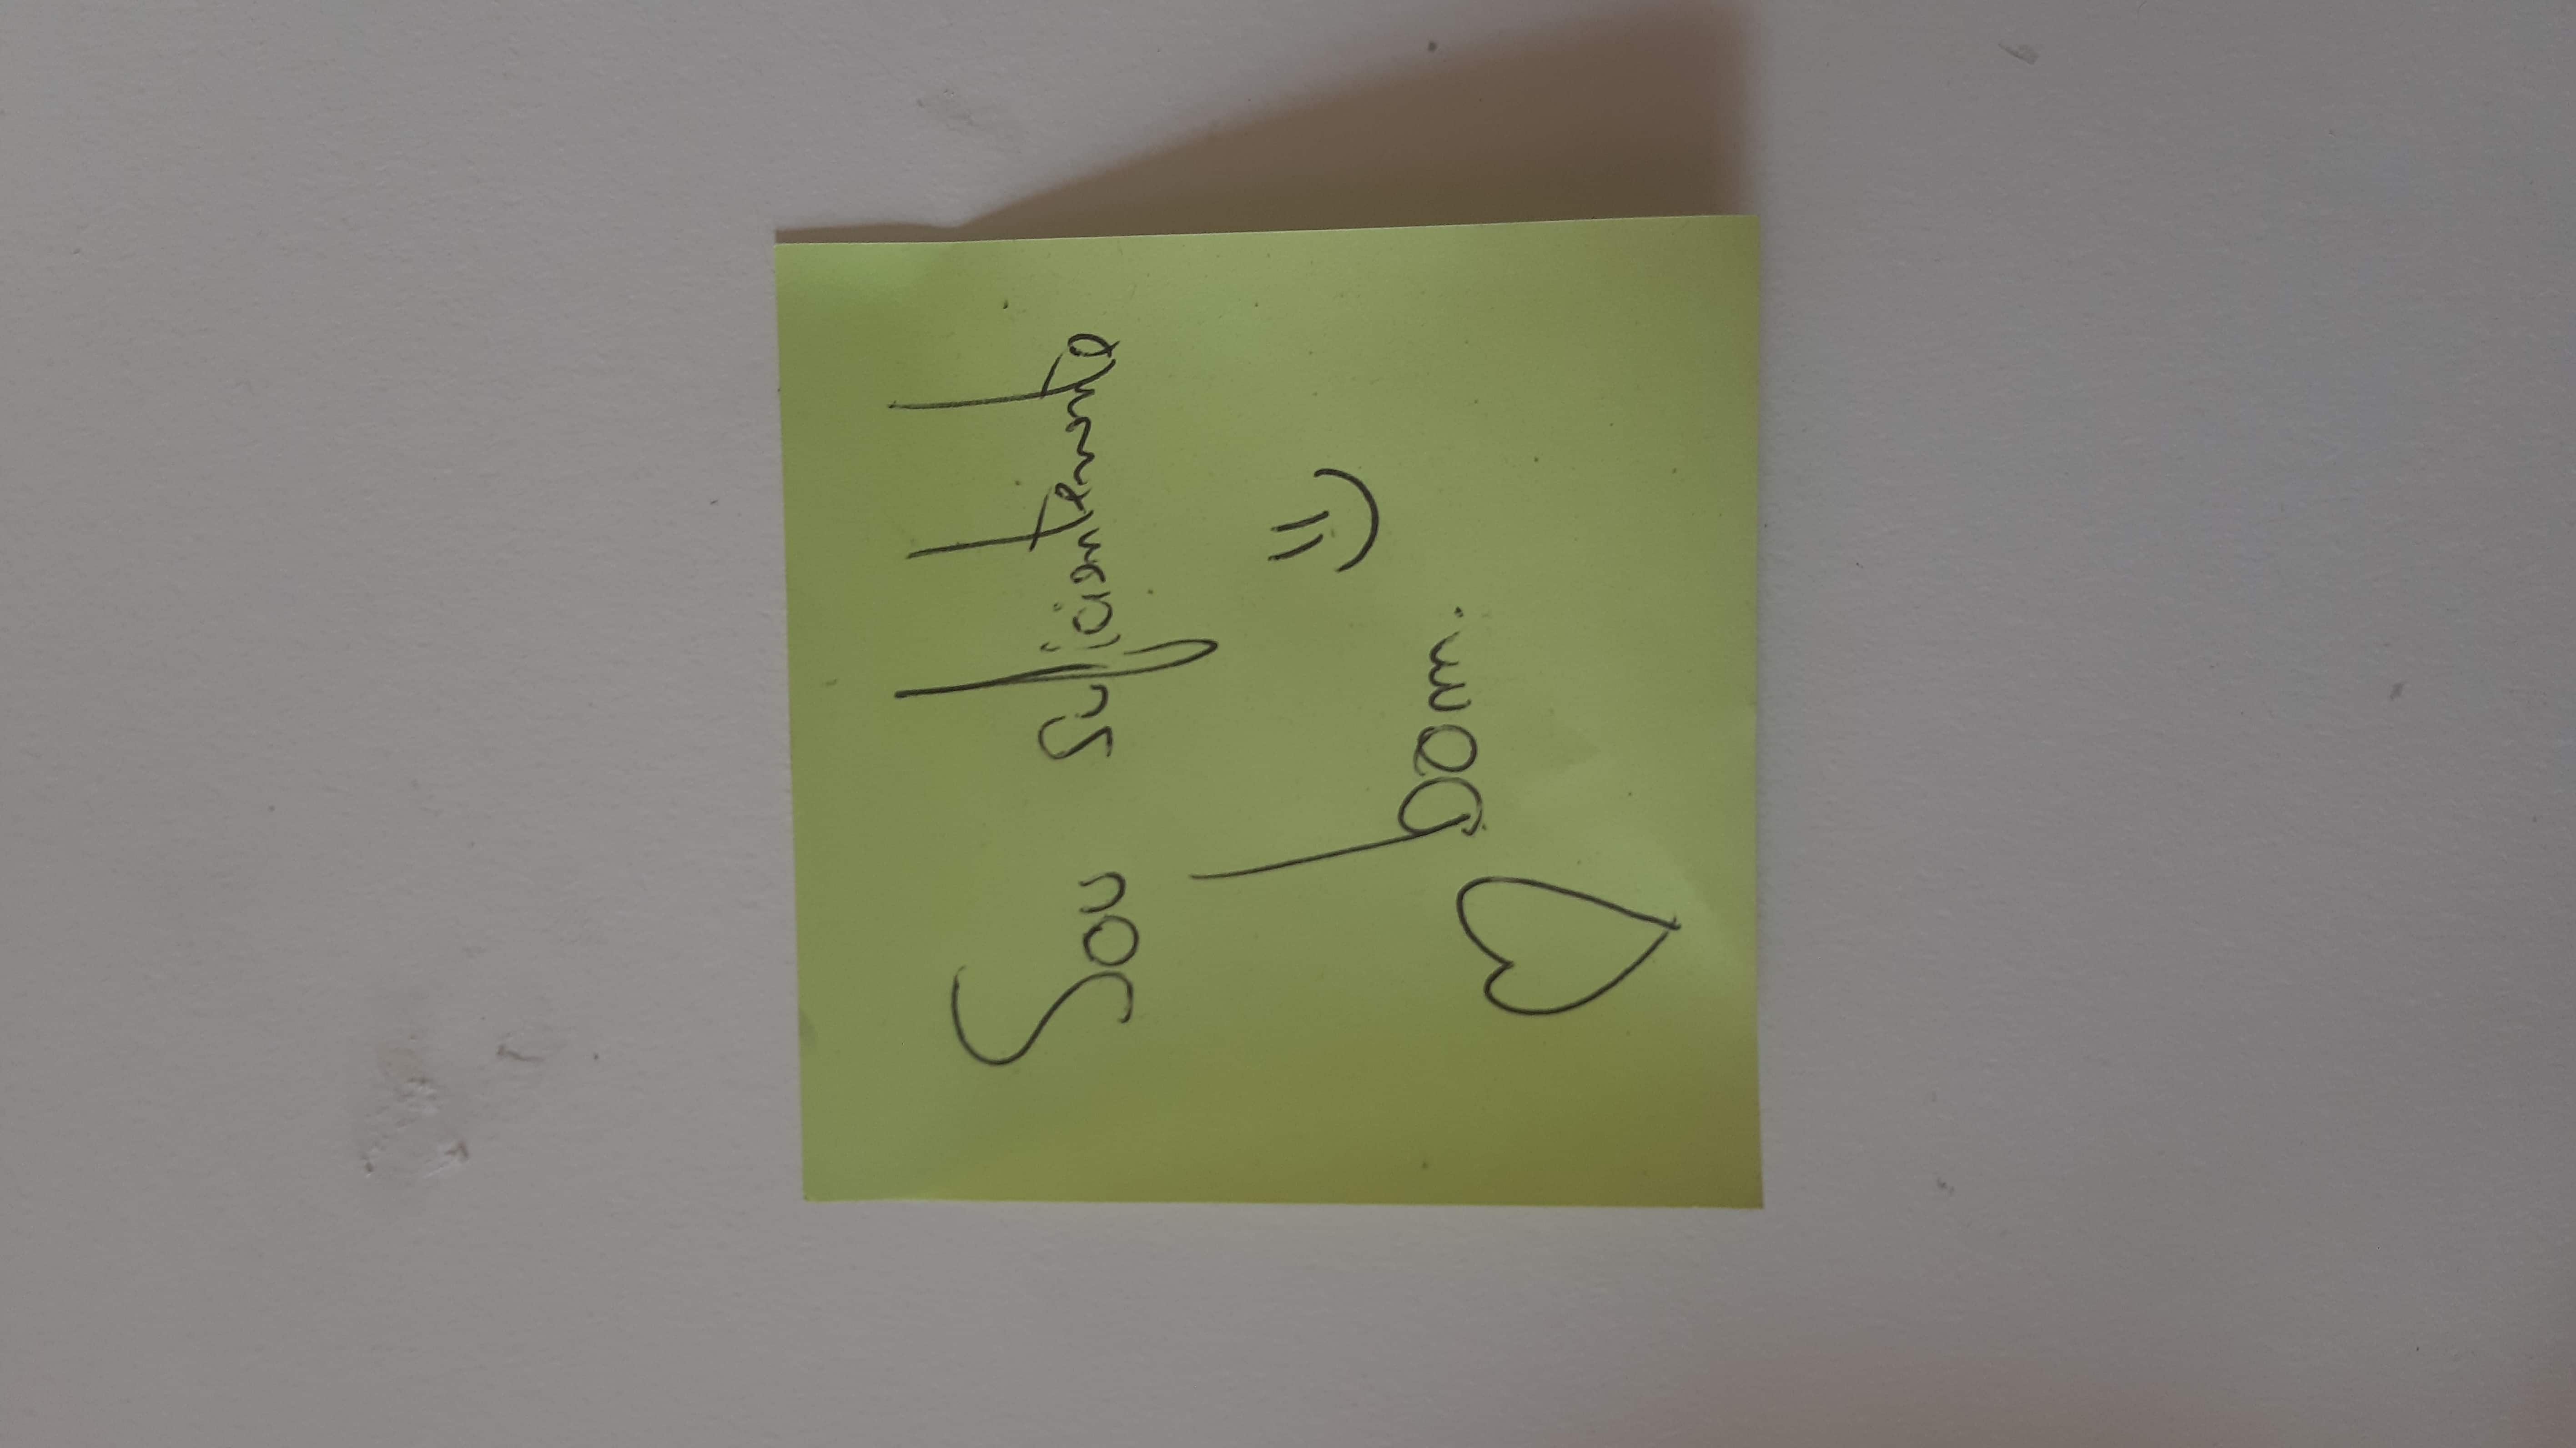 Sou suficientemente
bom.